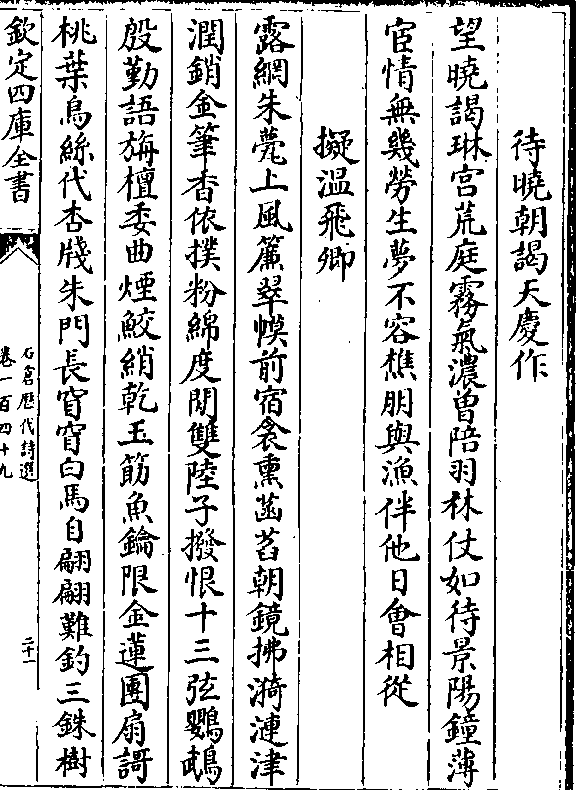 待曉朝謁天慶作
望曉謁琳宫荒庭霧氣濃曾陪羽林仗如待景陽鐘薄
宦情無幾勞生夢不容樵朋與漁伴他日會相從
擬温飛卿
露網朱甍上風簾翠幙前宿衾熏菡萏朝鏡拂漪漣津
潤銷金筆香依撲粉綿度閒雙陸子撥恨十三弦鸚鵡
殷勤語旃檀委曲煙鮫綃乾玉筯魚鑰限金蓮團扇謌
桃葉烏絲代杏牋朱門長窅窅白馬自翩翩難釣三銖樹
欽定四庫全書
石倉歷代詩選
卷一百四十九
二十一